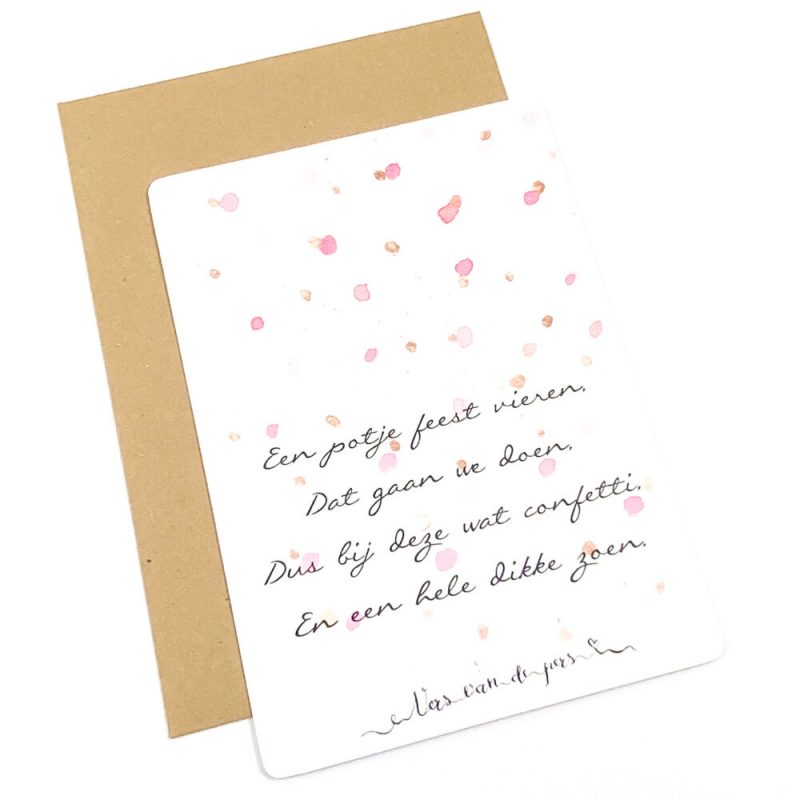 Een potje feest vieren,
Dat gaan we doen,
Dus bij deze wat confetti,
En een hele dikke zoen.
Vers van de pers